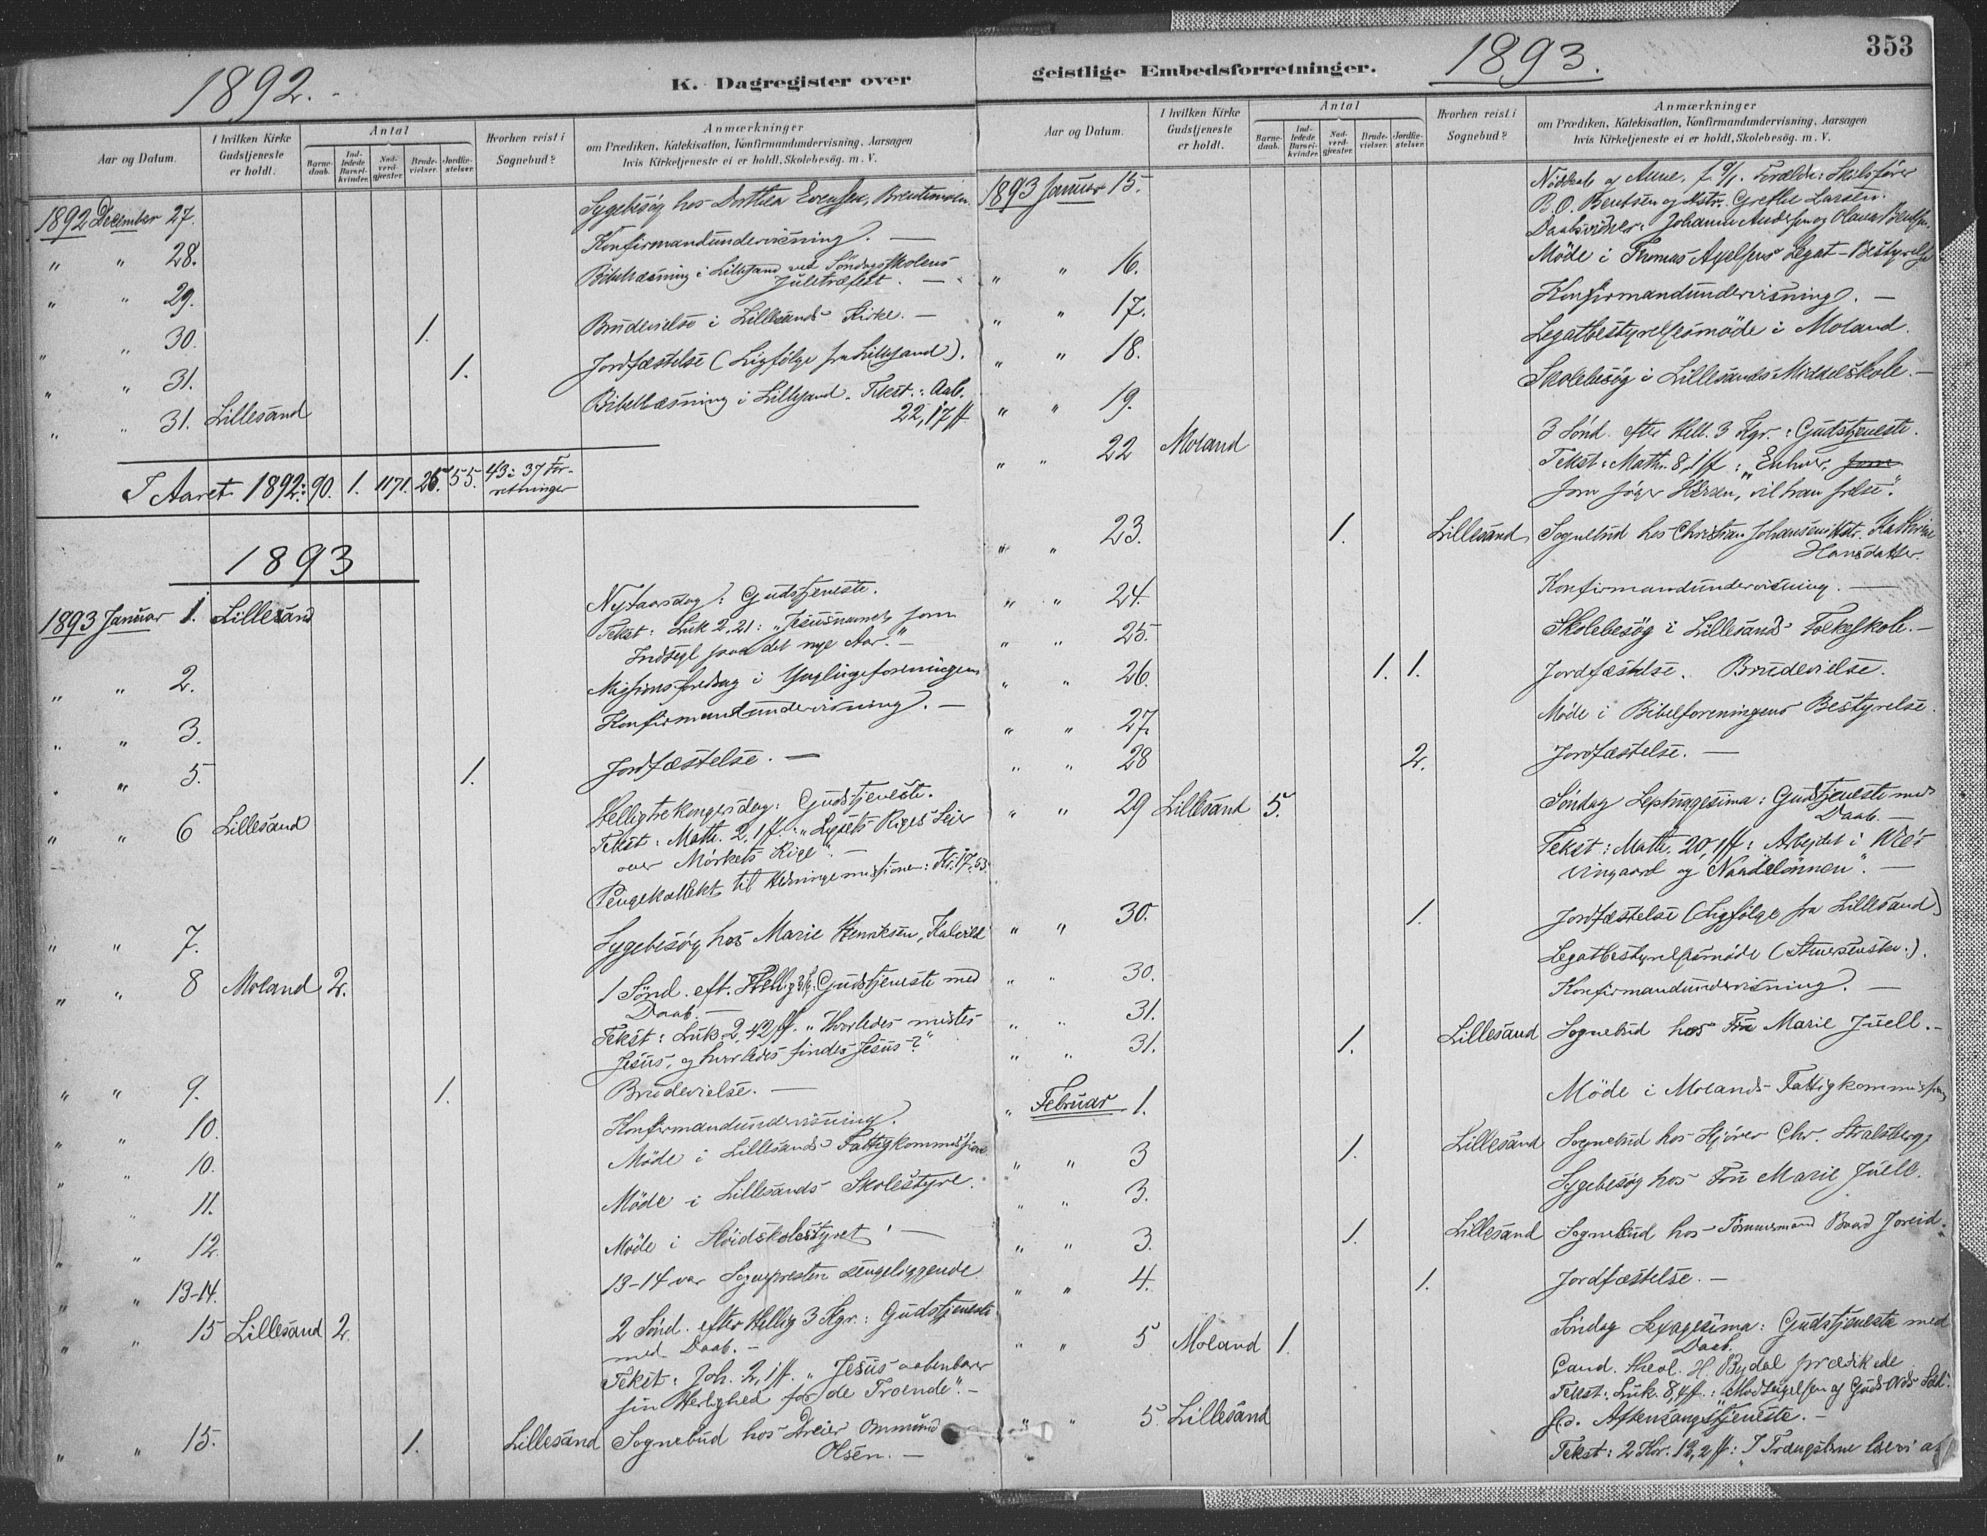 353
1892.
K. Dagregister over
Aar og Datum.
I hvilken Kirke Gudstjeneste er holdt.
Antal
Barnedaab.
Indledede Barselkvinder.
Nadverdgjester.
Brudevielser.
Jordfæstelser.
Hvorhen reist i Sognebud?
Anmærkninger
om Prædiken, Katekisation, Konfirmandundervisning, Aarsagen
hvis Kirketjeneste ei er holdt, Skolebesøg. m. V.
1892 December 27. Sygebesøg hos Dorthea Evensen,
" " 28. Konfirmandundervisning. —
" " 29. Bibellæsning i Lillesand ved Søndagsskolens
Juletræfest. —
" " 30. 1. Brudevielse i Lillesands Kirke. —
" " 31. 1. Jordfæstelse (Ligfølge fra Lillesand).
" " 31. Lillesand Bibellæsning i Lillesand. Tekst: Aab.
22,17 ff
I Aaret 1892: 90. 1. 1171. 25. 55. 43 i 37 For-
retninger
1893
1893 Januar 1. Lillesand Nytaarsdag: Gudstjeneste.
Tekst: Luk 2,21: "Jesusnavnet som
Indsegl paa det nye Aar." —
" " 2. Missionsforedrag i Ynglingeforeningen
" " 3. Konfirmandundervisning. —
" " 5. 1. Jordfæstelse. —
" " 6 Lillesand Helligtrekongersdag: Gudstjeneste.
Tekst: Math. 2,1 ff.: "Lysets Riges Seier
over Mørkets Rige". —
Pengekollekt til Hedningemissionen: Kr. 17,53.
" " 7. Sygebesøg hos Marie Henriksen,
" " 8 Moland 2. 1 Sønd. eft. Hellig 3 K: Gudstjeneste med
Daab. —
Tekst: Luk. 2,42 ff. "Hvorledes mistes
Jesus, og hvorledes findes Jesus?"
" " 9. 1. Brudevielse. —
" " 10. Konfirmandundervisning.
" " 10. Møde i Lillesands Fattigkommission
" " 11. Møde i Lillesands Skolestyre.
" " 12. Møde i Sløidskolestyret. —
" " 13-14. 13-14 var Sognepresten sengeliggende
" " 15 Lillesand 2. 2 Sønd. efter Hellig 3 Kgr.: Gudstjeneste
med Daab. —
Tekst: Joh. 2,1 ff. "Jesus aabenbarer
sin Herlighed for de Troende". —
" " 15. 1. Lillesand Sognebud hos Dreier Ommund
Olsen. —
geistlige Embedsforretninger.
1893.
Aar og Datum.
I hvilken Kirke Gudstjeneste er holdt.
Antal
Barnedaab.
Indledede Barselkvinder.
Nadverdgjester.
Brudevielser.
Jordfæstelser.
Hvorhen reist i Sognebud?
Anmærkninger
om Prædiken, Katekisation, Konfirmandundervisning, Aarsagen
hvis Kirketjeneste ei er holdt, Skolebesøg. m. V.
1893 Januar 15. Nøddaab af Anne, f. Forældre: Skibsfører
B. O. Bentsen og Hstr. Grethe Larsen.
Daabsvidner: Johanne Andersen og Olava Bentsen.
" " 16. Møde i Thomas Axelsens Legat-Bestyrelse
" " 17. Konfirmandundervisning. —
" " 18. Legatbestyrelsesmøde i Moland.
" " 19. Skolebesøg i Lillesands Middelskole. —
" " 22 Moland 3 Sønd. efter Hell. 3 Kgr.: Gudstjeneste.
Tekst: Math. 8,1 ff: "Enhver, som
som søger Herren, vil han frelse".
" " 23. 1. Lillesand Sognebud hos Christian Johansens Hstr. Kathrine
Hansdatter.
" " 24. Konfirmandundervisning. —
" " 25. Skolebesøg i Lillesands Folkeskole. —
" " 26. 1. 1. Jordfæstelse. Brudevielse.
" " 27. Møde i Bibelforeningens Bestyrelse.
" " 28 2. Jordfæstelse. —
" " 29 Lillesand 5. Søndag Septuagesima: Gudstjeneste med
Daab. —
Tekst: Math. 20,1 ff: Arbejdet i
Vingaard og Naadelønnen". —
" " 30. 1. Jordfæstelse (Ligfølge fra Lillesand)
" " 30. Legatbestyrelsesmøde
" " 31. Konfirmandundervisning. —
" " 31. 1. Lillesand Sognebud hos Fru Marie Juell. —
" Februar 1. Møde i Molands Fattigkommission
" " 3 1. Lillesand Sognebud hos Chr. Stralsberg.
" " 3. Sygebesøg hos Fru Marie Juell.
" " 3. 1. Lillesand Sognebud hos Tømmermand
" " 4. 1. Jordfæstelse. —
" " 5 Moland 1. Søndag Sexagesima: Gudstjeneste med
Daab.
Cand. theol. H. prædikede
Tekst: Luk. 8,4 ff.: Modtagelsen af Guds Ords Sæd.
" " 5 Lillesand S. D. Aftensangstjeneste. —
Tekst: 2 Kor. 12,2 ff: "I Trængslerne lære vi at